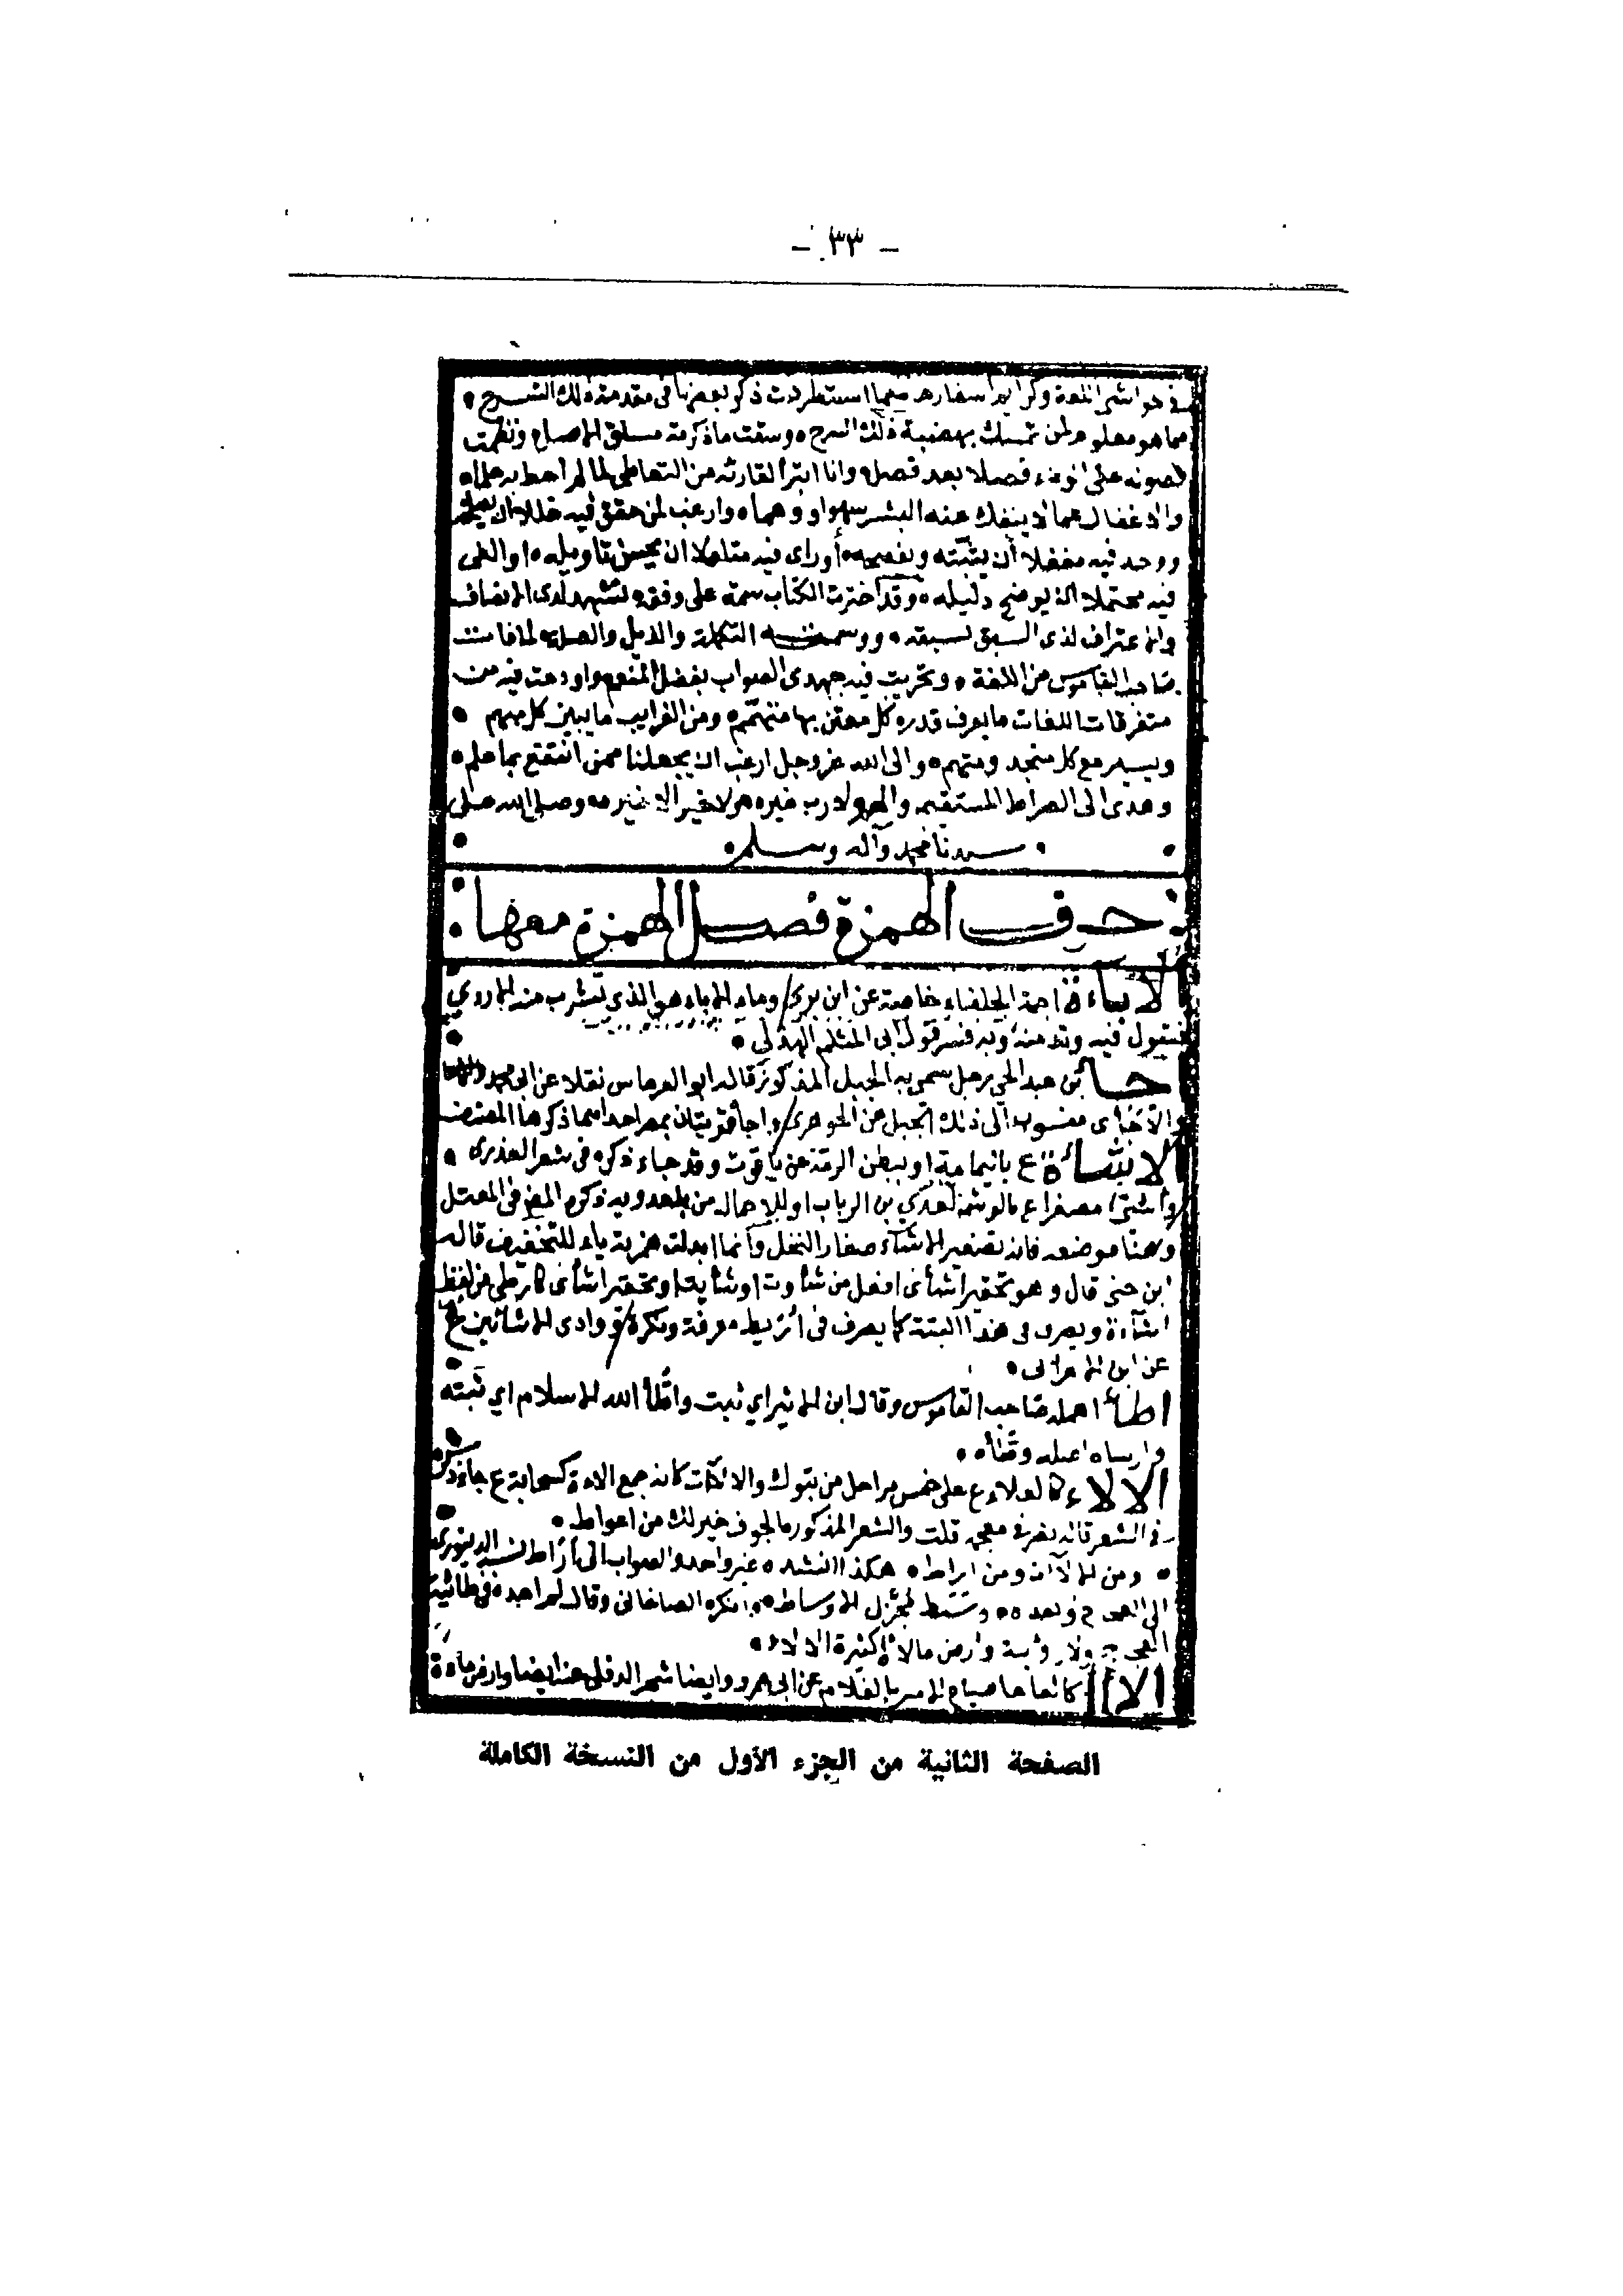 - ٣٣ -
في حواشي اللغة استطردت ذكر بعضها في مقدمة ذلك الشرح
مما هو معلوم لمن تمسك ذلك الشرح وسقت ما ذكرته ونظمت
فصلا بعد فصل وانا ابرأ لقارئه من التعاطي لما لم احط به علما
والاغفال عما لا ينفك عنه البشر سهوا ووهما وارغب لمن حقق فيه خللا ان
ووجد فيه مغفلا أن يثبته أو راى فيه متاولا ان يحسن تاويله او الفى
فيه محتملا ان يوضح دليله وقد اخترت الكتاب سمة على وفقه
والاعتراف لذى السبق بسبقه ووسمته التكملة والذيل والصلة لما فات
صاحب القاموس من اللغة وتحريت فيه جهدى الصواب بفضل المنعم واودعت فيه من
متفرقات اللغات ما يعرف قدره كل معتن بها متهمم ومن الغرايب ما يبين كل مبهم
ويسير مع كل منجد ومتهم والى الله عز وجل ارغب ان يجعلنا ممن انتفع بما علم
وهدى الى الصراط المستقيم ولا رب غيره ولا خير الا خيره وصلى الله على
سيدنا محمد وآله وسلم
حرف الهمزة فصل الهمزة معها
الاباءة اجمة الحلفاء خاصة عن ابن بري وماء الاباء هو الذى تشرب منه الاروى
فتبول فيه وتدمنه وبه فسر قول ابي المثلم الهذلي
أجأ بن عبد الحي رجل سمي به الجبل المذكور قاله ابو العرماس نقلا عن ابى محمد
والأجئى منسوب الى ذلك الجبل عن الجوهرى واجأ قريتان بمصر احداهما ذكرها المصنف
الاشاءة ع باليمامة او ببطن الرمة عن ياقوت وقد جاء ذكره فى شعر العذرى
وأشى مصغرا ع بالوشم لعدي بن الرباب او للاحمال من بلعدويه ذكره المصنف فى المعتل
وهنا موضعه فانه تصغير الاشاء صغار النخل وانما ابدلت همزته ياء للتخفيف قاله
ابن جنى قال وهو تحقير اشأى افعل من شأوت او شأيت او تحقير اشأى كارطى من لفظ
اشاءة ويصرف فى هذا البتة كما يصرف فى أريط معرفة ونكرة ووادى الاشائين ع
عن ابن الاعرابى
اطأ اهمله صاحب القاموس وقال ابن الاثير اي ثبت واطأ الله الاسلام اي ثبته
وارساه اصله وطأه
الالاء كالعلاء ع على خمس مراحل من تبوك والالاآت كانه جمع الاءة كسحابة ع جاء ذكره
فى الشعر قاله نصر فى معجمه قلت والشعر المذكور
ومن الالاآت ومن اراط هكذا انشده غير واحد والصواب الى أراط
انكره الصاغانى وقال لم اجده فى طائية
العجاج ولا رؤبة وارض مالأة كثيرة الالاء
الاأ
الصفحة الثانية من الجزء الأول من النسخة الكاملة